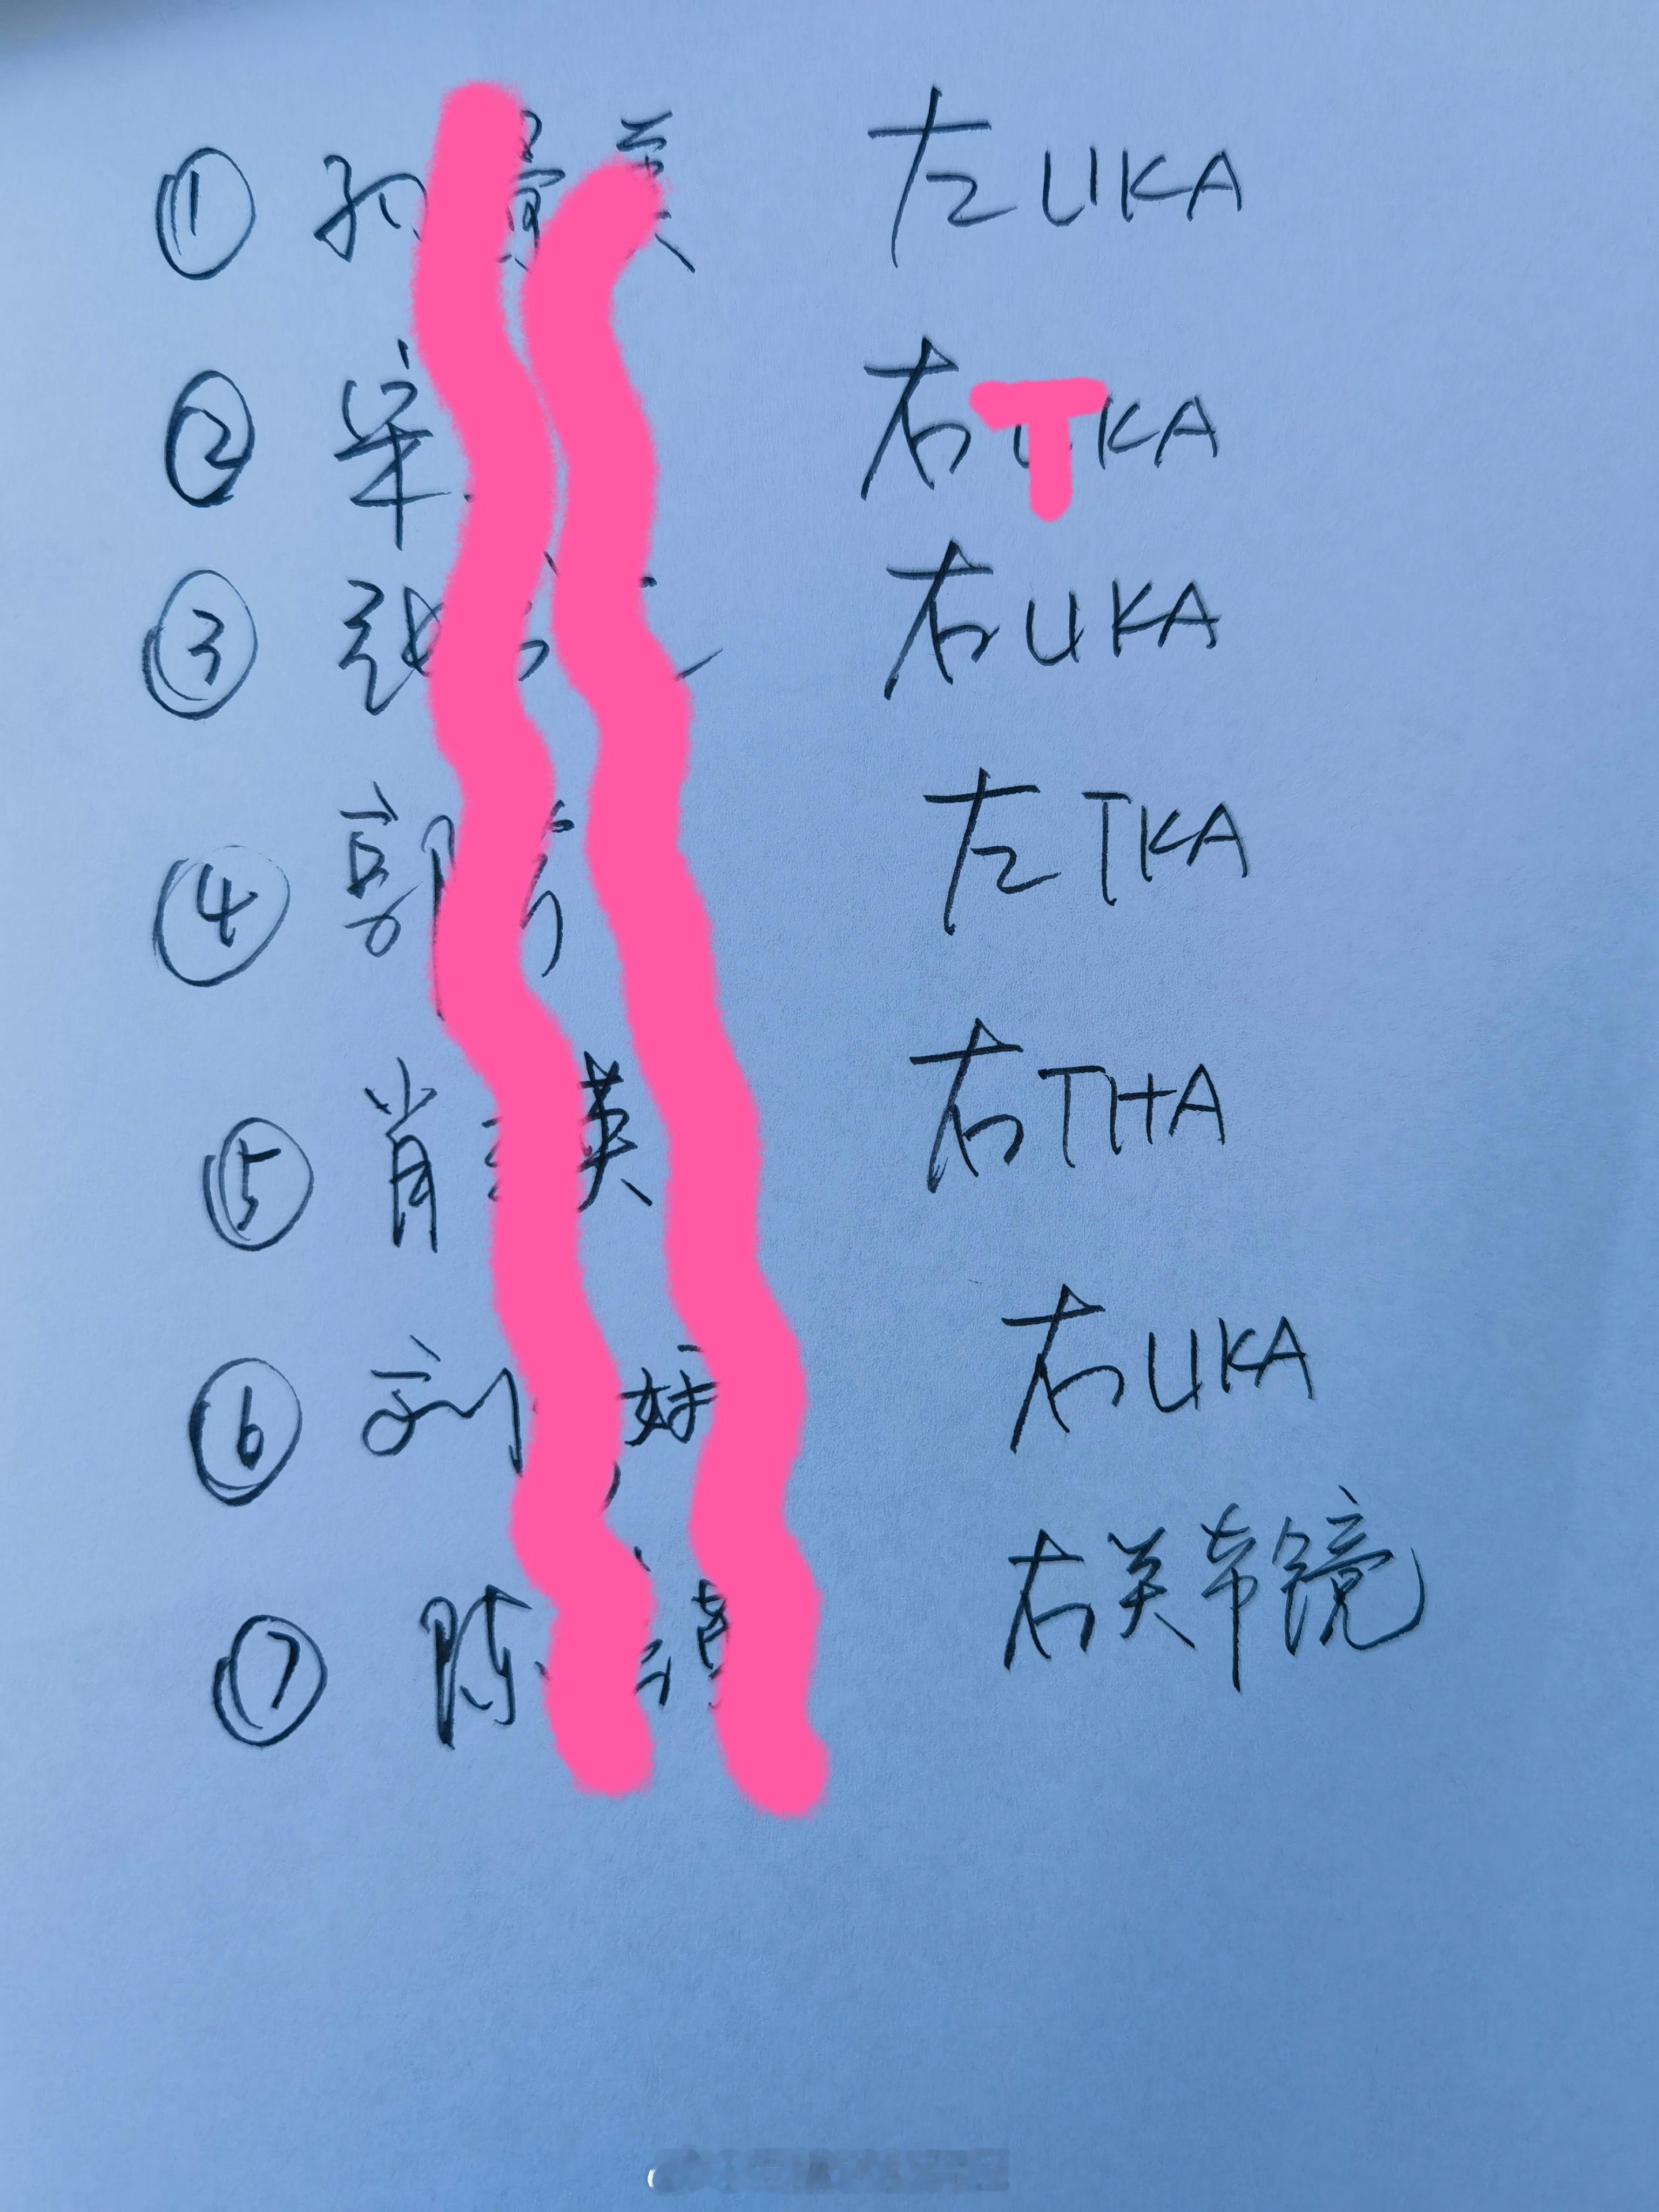 ① 孙 左UKA
② 宋 右TKA
③ 张 右UKA
④ 郭 左TKA
⑤ 肖 英 右THA
⑥ 刘 右UKA
⑦ 陈 右关节镜